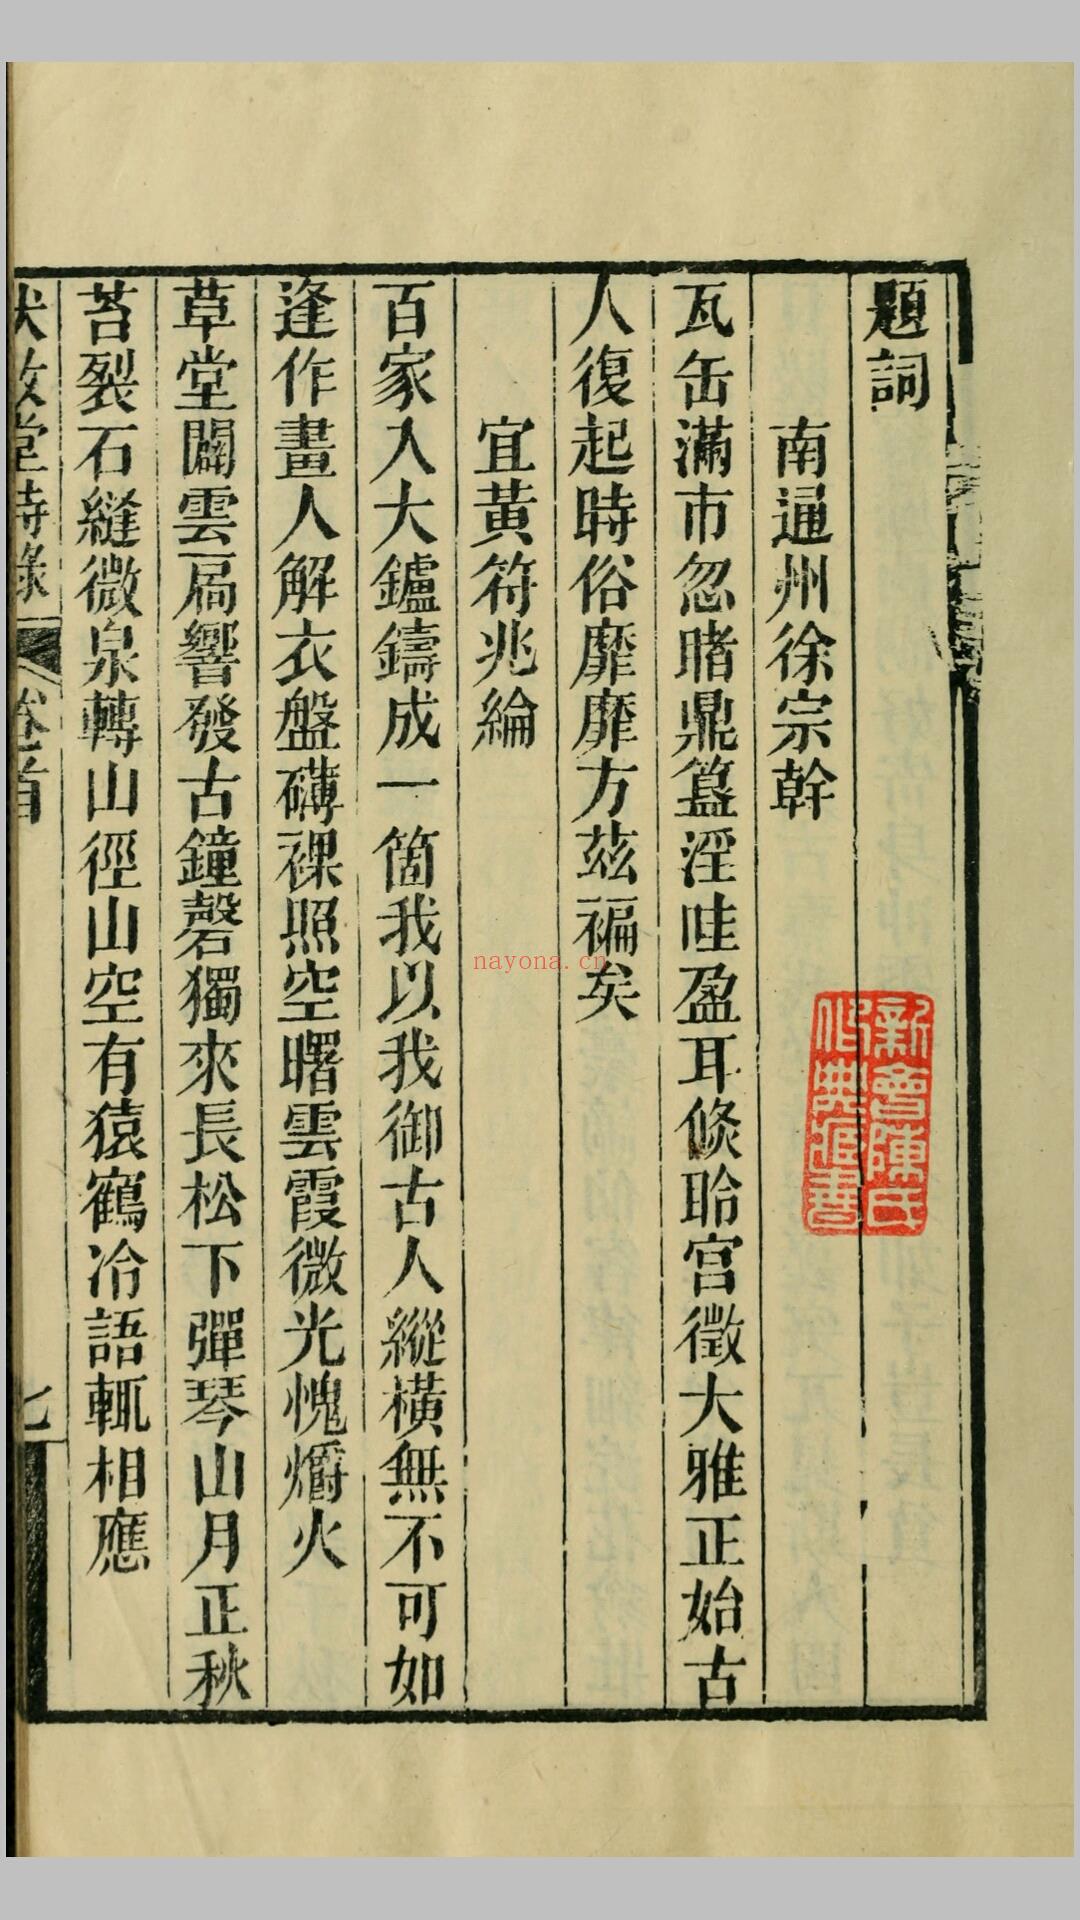 題詞
南通州徐宗幹
瓦缶滿市忽睹鼎簋淫哇盈耳倏聆宮徵大雅正始古
人復起時俗靡靡方茲褊矣
宜黃符兆綸
百家入大鑪鑄成一箇我以我御古人縱橫無不可如
逢作畫人解衣盤礴裸照空曙雲霞微光愧爝火
草堂闢雲扃響發古鐘磬獨來長松下彈琴山月正秋
苔裂石縫微泉轉山徑山空有猿鶴冷語輒相應
堂詩錄
卷首
七
新會陳氏
書
nayona.cn